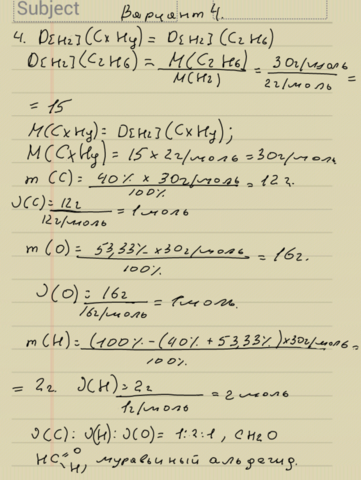 Subject
Вариант 4.
4. D[H2](CxHy) = D[H2](C2H6)
D[H2](C2H6) = M(C2H6)/M(H2) = 30г/моль/2г/моль =
= 15
M(CxHy) = D[H2](CxHy);
M(CxHy) = 15 x 2г/моль = 30г/моль
m (C) = 40% x 30г/моль/100% = 12 г.
ν(C) = 12г/12г/моль = 1 моль
m (O) = 53,33% x 30г/моль/100% = 16г.
ν(O) = 16г/16г/моль = 1моль.
m (H) = (100% - (40% + 53,33%) x 30г/моль/100% =
= 2г. ν(H) = 2г/1г/моль = 2 моль
ν(C) : ν(H) : ν(O) = 1:2:1, CH2O
HC=O H, муравьиный альдегид.